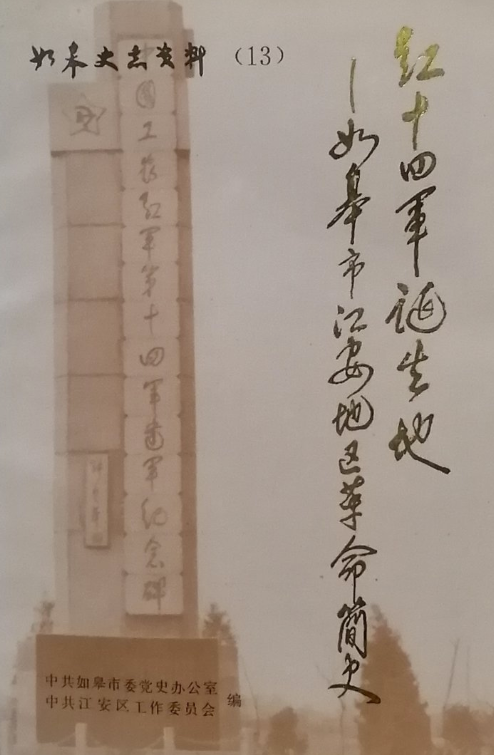 如皋史志资料（13）
红十四军诞生地
—如皋市江安地区革命简史
中国工农红军第十四军建军纪念碑
中共如皋市委党史办公室
中共江安区工作委员会 编